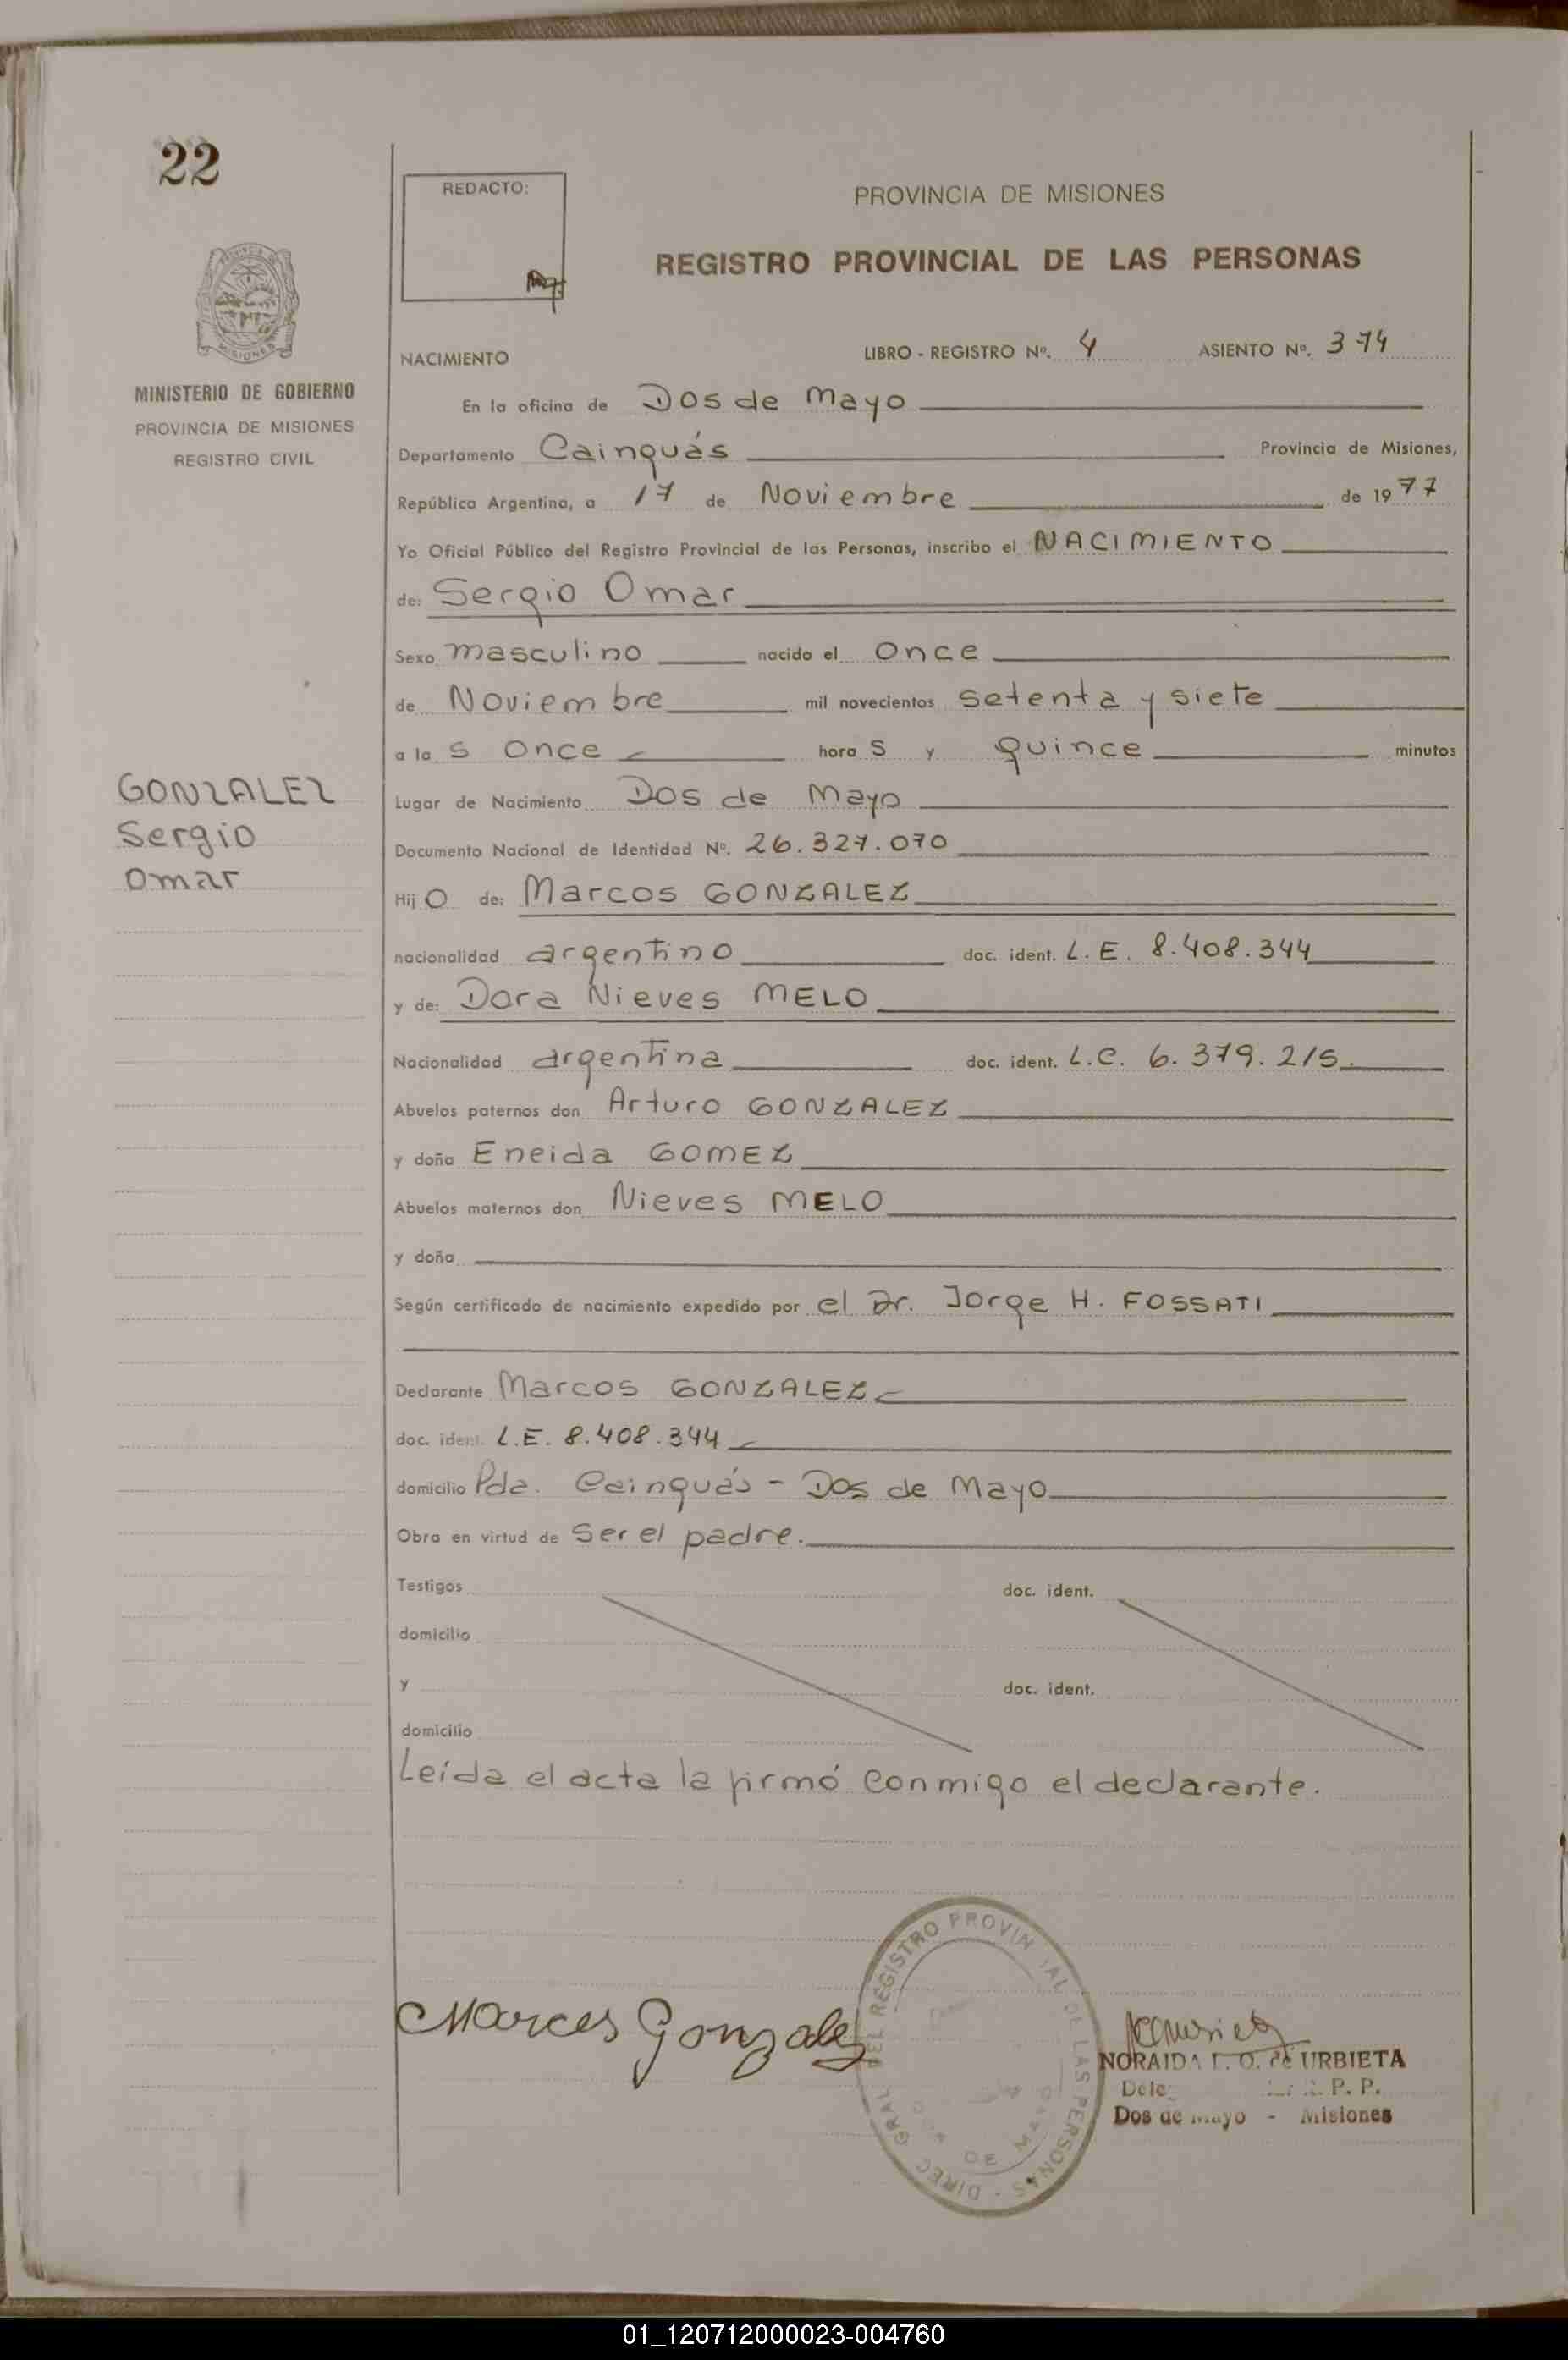 22
REDACTO:
PROVINCIA DE MISIONES
REGISTRO PROVINCIAL DE LAS PERSONAS
MISIONES
MINISTERIO DE GOBIERNO
PROVINCIA DE MISIONES
REGISTRO CIVIL
NACIMIENTO LIBRO - REGISTRO Nº. 4 ASIENTO Nº. 374
En la oficina de Dos de Mayo
Departamento Cainguás Provincia de Misiones,
República Argentina, a 17 de Noviembre de 1977
Yo Oficial Público del Registro Provincial de las Personas, inscribo el NACIMIENTO
de: Sergio Omar
Sexo masculino nacido el once
de Noviembre mil novecientos setenta y siete
a las once horas y quince minutos
GONZALEZ
Sergio
Omar
Lugar de Nacimiento Dos de Mayo
Documento Nacional de Identidad Nº. 26.327.070
Hijo de: Marcos GONZALEZ
nacionalidad argentino doc. ident. L.E. 8.408.344
y de: Dora Nieves MELO
Nacionalidad argentina doc. ident. L.C. 6.379.215.
Abuelos paternos don Arturo GONZALEZ
y doña Eneida GOMEZ
Abuelos maternos don Nieves MELO
y doña
Según certificado de nacimiento expedido por el Dr. Jorge H. FOSSATI
Declarante Marcos GONZALEZ
doc. ident. L.E. 8.408.344
domicilio Pda. Cainguás - Dos de Mayo
Obra en virtud de ser el padre.
Testigos doc. ident.
domicilio
y doc. ident.
domicilio
Leída el acta la firmó conmigo el declarante.
Marcos Gonzalez
DIREC. GRAL. DEL REGISTRO PROVINCIAL DE LAS PERSONAS
DOS DE MAYO
NORAIDA O. de URBIETA
P. P.
Dos de Mayo - Misiones
01_120712000023-004760